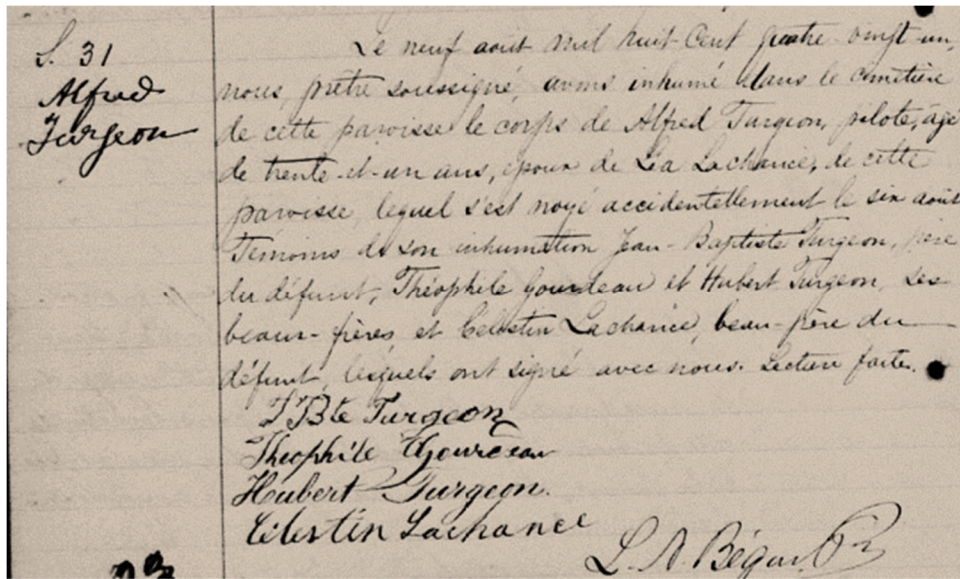 S. 31
Alfred
Turgeon
Le neuf août mil huit-cent quatre-vingt-un,
nous, prêtre soussigné, avons inhumé dans le cimetière
de cette paroisse le corps de Alfred Turgeon, pilote, âgé
de trente-et-un ans, époux de Léa Lachance, de cette
paroisse, lequel s'est noyé accidentellement le six août
Témoins de son inhumation Jean-Baptiste Turgeon, père
du défunt, Théophile Gourdeau et Hubert Turgeon, ses
beaux-frères, et Célestin Lachance, beau-père du
défunt, lesquels ont signé avec nous. Lecture faite.
J Bte Turgeon
Théophile Gourdeau
Hubert Turgeon.
Célestin Lachance
L. A. Bégin Ptre